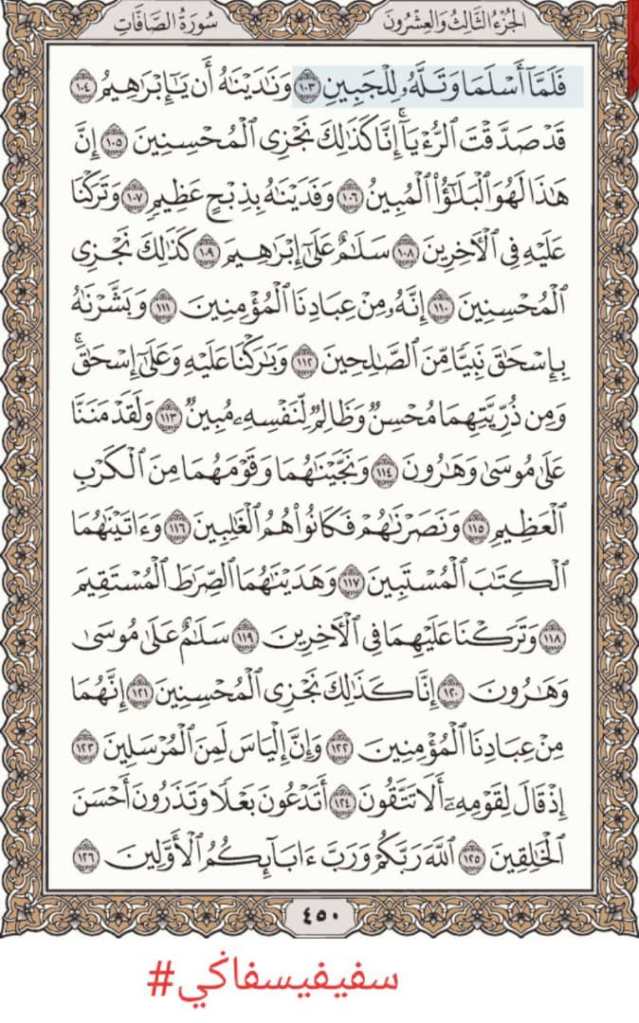 الجُزْءُ الثَّالِثُ وَالعِشْرُونَ سُورَةُ الصَّافَّاتِ
فَلَمَّآ أَسْلَمَا وَتَلَّهُۥ لِلْجَبِينِ ١٠٣ وَنَٰدَيْنَٰهُ أَن يَٰٓإِبْرَٰهِيمُ ١٠٤
قَدْ صَدَّقْتَ ٱلرُّءْيَآ ۚ إِنَّا كَذَٰلِكَ نَجْزِى ٱلْمُحْسِنِينَ ١٠٥ إِنَّ
هَٰذَا لَهُوَ ٱلْبَلَٰٓؤُا۟ ٱلْمُبِينُ ١٠٦ وَفَدَيْنَٰهُ بِذِبْحٍ عَظِيمٍ ١٠٧ وَتَرَكْنَا
عَلَيْهِ فِى ٱلْءَاخِرِينَ ١٠٨ سَلَٰمٌ عَلَىٰٓ إِبْرَٰهِيمَ ١٠٩ كَذَٰلِكَ نَجْزِى
ٱلْمُحْسِنِينَ ١١٠ إِنَّهُۥ مِنْ عِبَادِنَا ٱلْمُؤْمِنِينَ ١١١ وَبَشَّرْنَٰهُ
بِإِسْحَٰقَ نَبِيًّا مِّنَ ٱلصَّٰلِحِينَ ١١٢ وَبَٰرَكْنَا عَلَيْهِ وَعَلَىٰٓ إِسْحَٰقَ ۚ
وَمِن ذُرِّيَّتِهِمَا مُحْسِنٌ وَظَالِمٌ لِّنَفْسِهِۦ مُبِينٌ ١١٣ وَلَقَدْ مَنَنَّا
عَلَىٰ مُوسَىٰ وَهَٰرُونَ ١١٤ وَنَجَّيْنَٰهُمَا وَقَوْمَهُمَا مِنَ ٱلْكَرْبِ
ٱلْعَظِيمِ ١١٥ وَنَصَرْنَٰهُمْ فَكَانُوا۟ هُمُ ٱلْغَٰلِبِينَ ١١٦ وَءَاتَيْنَٰهُمَا
ٱلْكِتَٰبَ ٱلْمُسْتَبِينَ ١١٧ وَهَدَيْنَٰهُمَا ٱلصِّرَٰطَ ٱلْمُسْتَقِيمَ
١١٨ وَتَرَكْنَا عَلَيْهِمَا فِى ٱلْءَاخِرِينَ ١١٩ سَلَٰمٌ عَلَىٰ مُوسَىٰ
وَهَٰرُونَ ١٢٠ إِنَّا كَذَٰلِكَ نَجْزِى ٱلْمُحْسِنِينَ ١٢١ إِنَّهُمَا
مِنْ عِبَادِنَا ٱلْمُؤْمِنِينَ ١٢٢ وَإِنَّ إِلْيَاسَ لَمِنَ ٱلْمُرْسَلِينَ ١٢٣
إِذْ قَالَ لِقَوْمِهِۦٓ أَلَا تَتَّقُونَ ١٢٤ أَتَدْعُونَ بَعْلًا وَتَذَرُونَ أَحْسَنَ
ٱلْخَٰلِقِينَ ١٢٥ ٱللَّهَ رَبَّكُمْ وَرَبَّ ءَابَآئِكُمُ ٱلْأَوَّلِينَ ١٢٦
٤٥٠
#سفيفيسفاكي